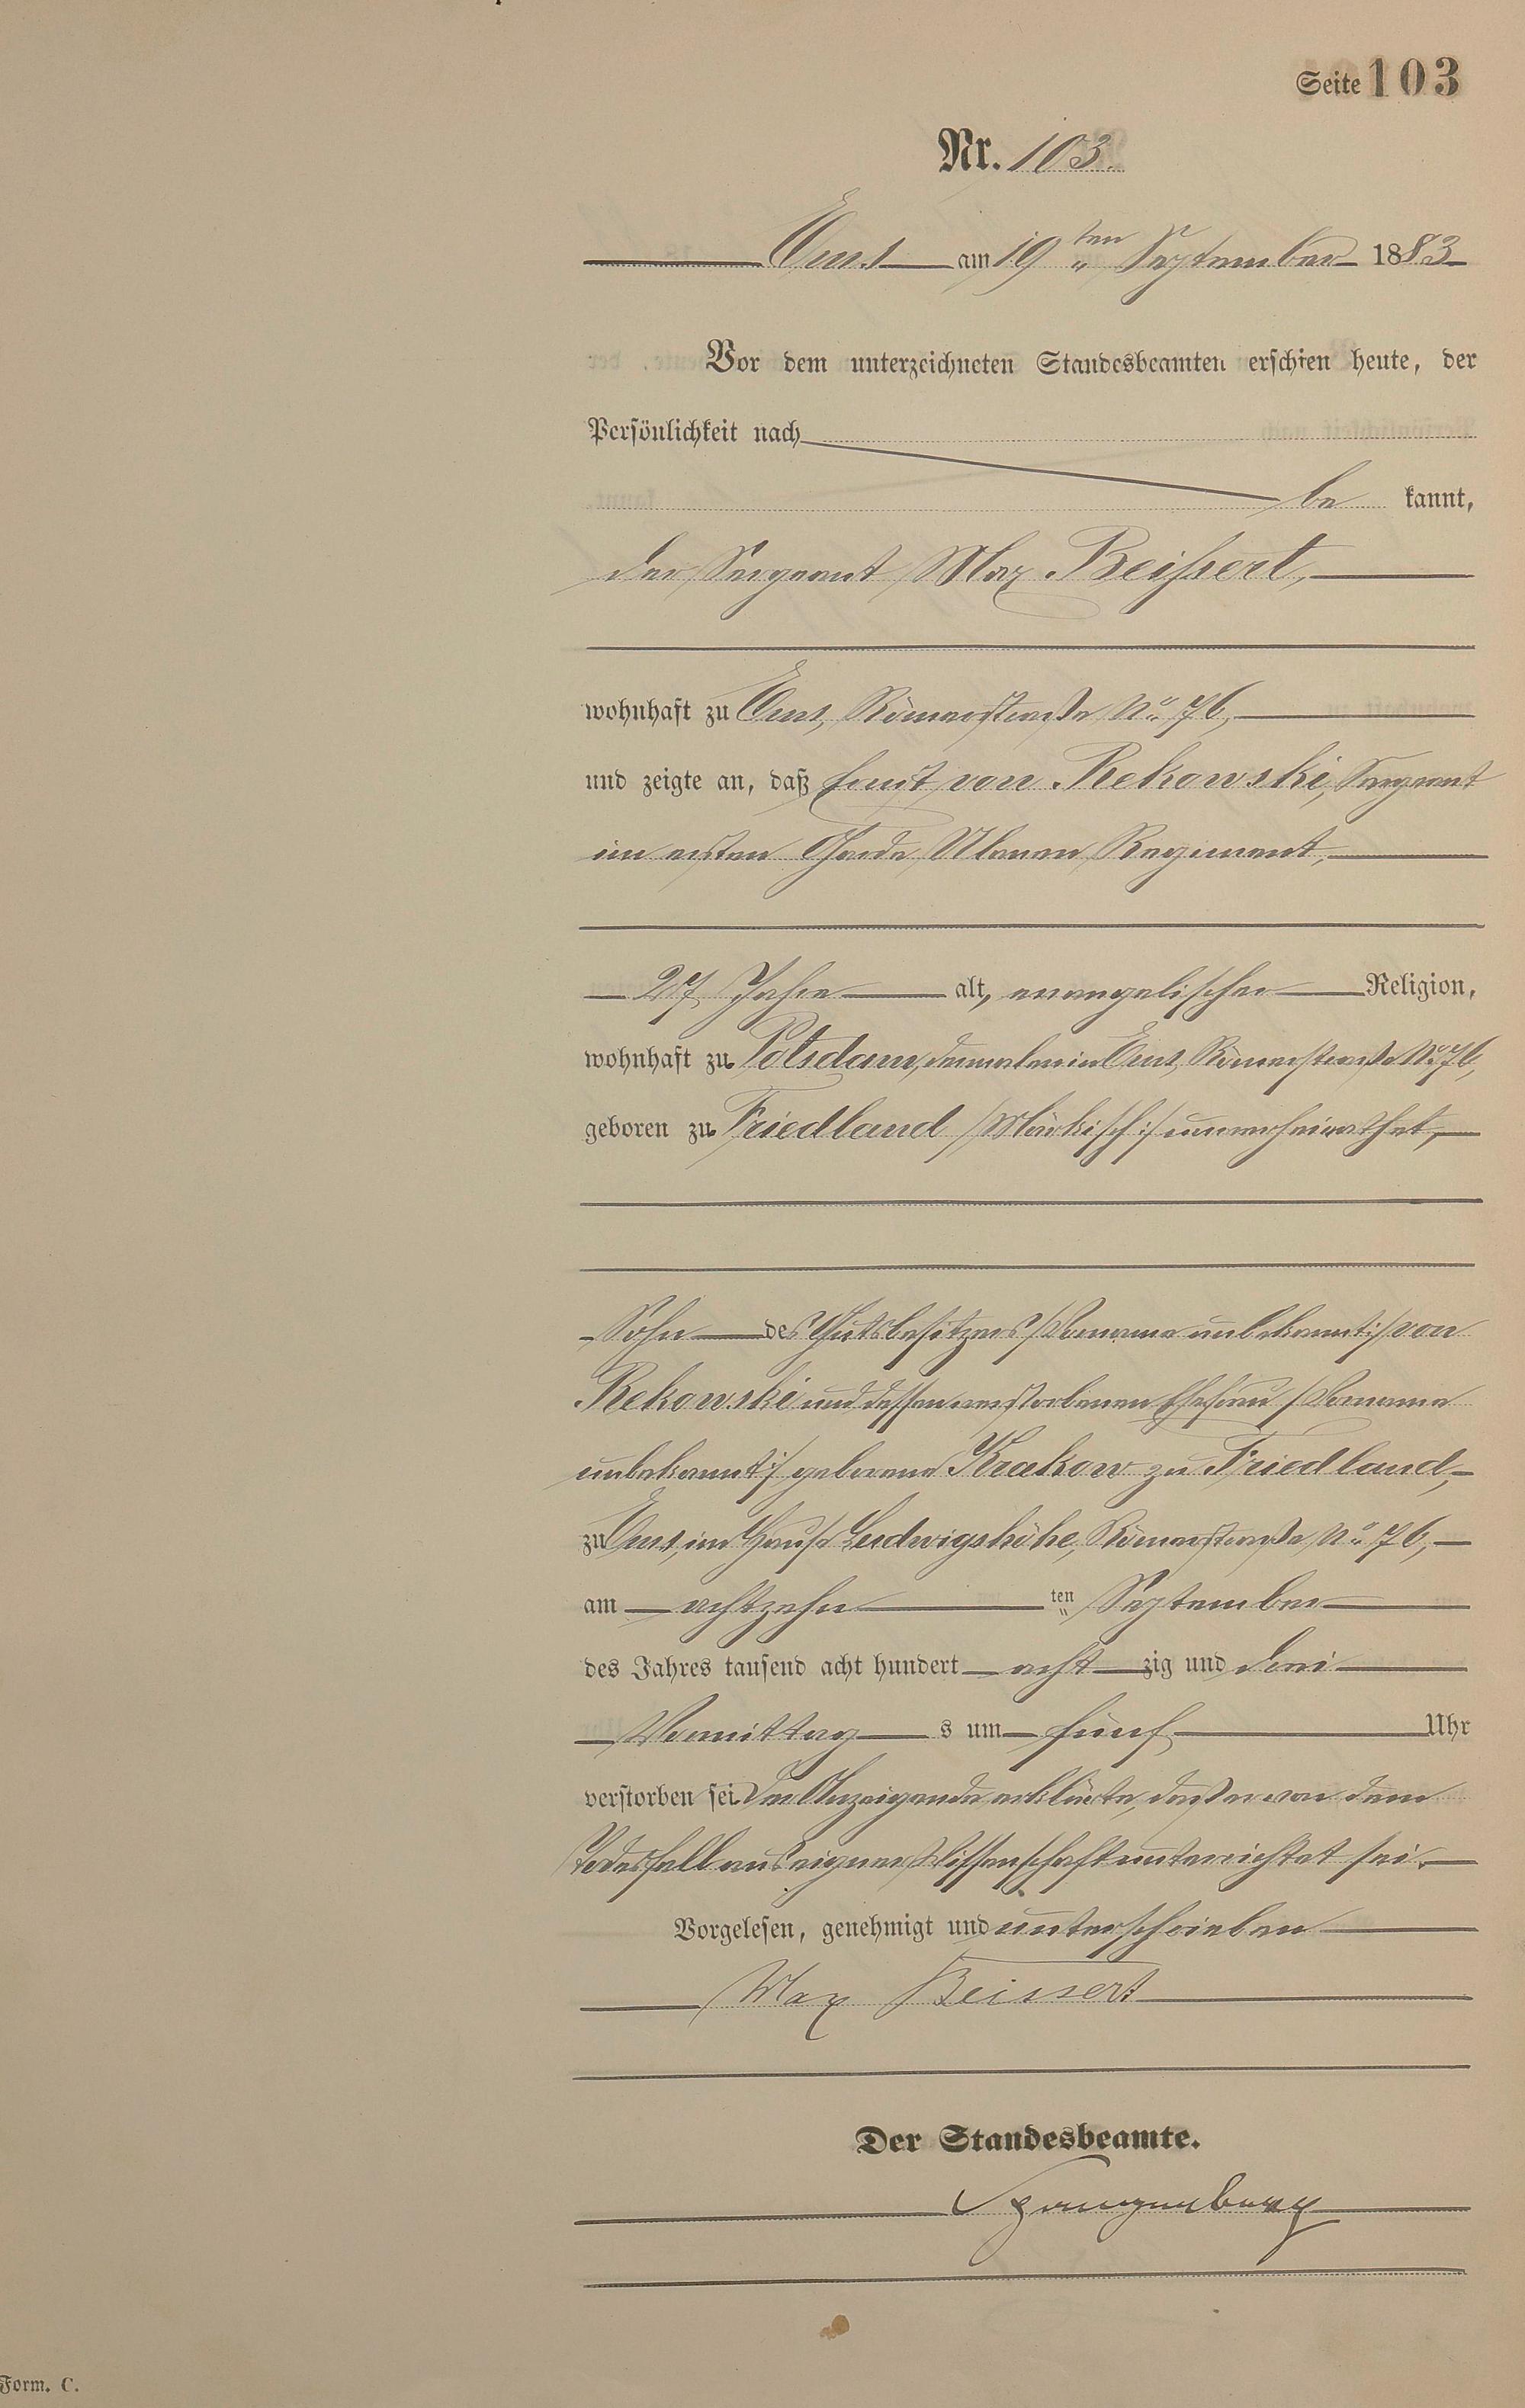 Seite 103
Nr. 103.
Ems am 19ten September 1883
Vor dem unterzeichneten Standesbeamten erschien heute, der
Persönlichkeit nach
be kannt,
der Sergeant Max Beißert,
wohnhaft zu Ems, Römerstraße No 76,
und zeigte an, daß Ernst von Rekowski, Sergeant
im ersten Garde Ulanen Regiment,
27 Jahre alt, evangelischer Religion,
wohnhaft zu Potsdam, dermalen in Ems, Römerstraße No 76,
geboren zu Friedland /:Märkisch:/ unverheirathet,
Sohn des Gutsbesitzers /:Vorname unbekannt:/ von
Rekowski und dessen verstorbenen Ehefrau /:Vorname
unbekannt:/ geborene Krakow zu Friedland,
zu Ems, im Hause Ludwigshöhe, Römerstraße No 76,
am achtzehn ten September
des Jahres tausend acht hundert acht zig und drei
Vormittag s um fünf Uhr
verstorben sei. Der Anzeigende erklärte, daß er von dem
Todesfall aus eigener Wissenschaft unterrichtet sei.
Vorgelesen, genehmigt und unterschrieben
Max Beissert
Der Standesbeamte.
Spangenberg
Form. C.